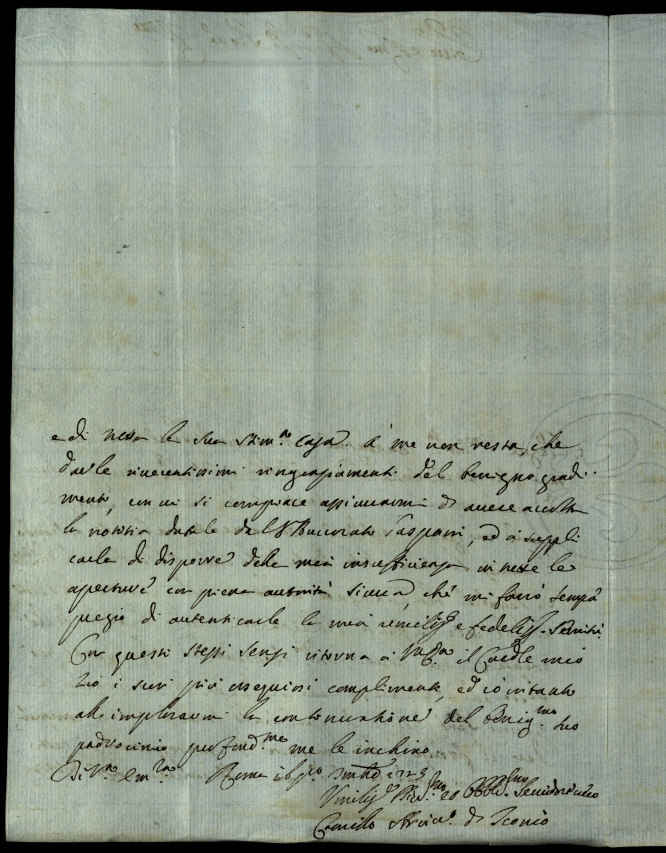 e di tutta la sua stim.ma Casa. A me non resta, che
darle riverentissimi ringraziamenti del benigno gradi-
mento, con cui si compiace assicurarmi di avere accolta
la notitia datale dall' Gaspari, ed a suppli
carla di disporre della mia insufficienza in tutte le
aperture con piena autorità sicura, che mi farò sempre
pregio di autenticarle la mia umiliss.a e fedeliss. Servitù
Con questi stessi sensi ritorna a il Cardle mio
Zio i suoi più ossequiosi complimenti, ed io intanto
all' implorarmi la continuatione del Benig.mo suo
padrocinio profond.me me le inchino
Di V.ra Em.za Roma
Umiliss. Div.mo ed Obblig.mo Servidore
Camillo Arciv.o di Iconio